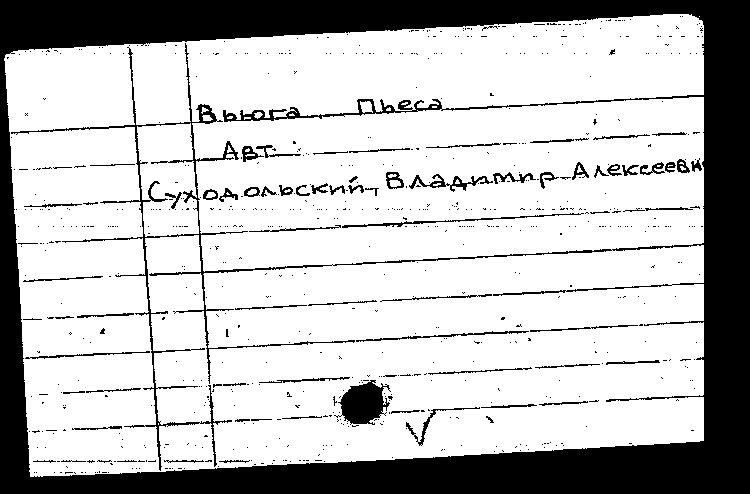 Вьюга. Пьеса
Авт.
Суходольский, Владимир Алексеевич